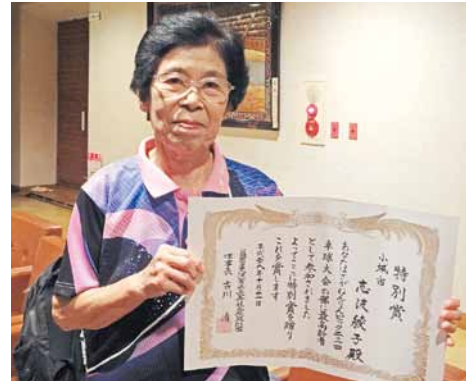 特別賞
小城市
志波綾子殿
あなたはさがねんりんピック
卓球大会の部に最高齢者
として参加されました
よってここに特別賞を贈り
これを賞します
平成
理事長 古川